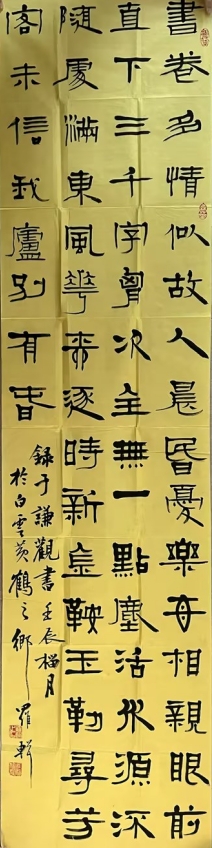 書卷多情似故人晨昏憂樂每相親眼前
直下三千字胷次全無一點塵活水源深
隨處滿東風華柳逐時新金鞍玉勒尋芳
客未信我廬別有春
錄于謙觀書壬辰榴月
於白雲黃鶴之鄉羅